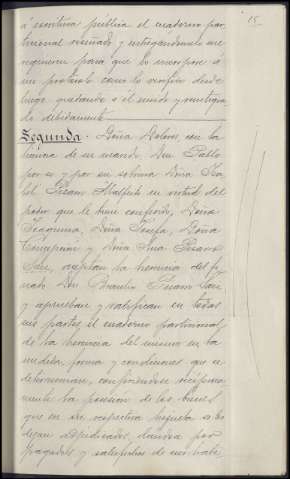 15
á escritura pública el cuaderno par-
ticional reseñado y entregándomele me
requieren para que lo incorpore á
mi protocolo como lo verifico desde
luego quedando á él unido y reintegra-
do debidamente
Segunda. Doña Dolores, con la
licencia de su marido, Don Pablo
por sí y por su sobrina Doña Isa-
bel Pizano Malfeito en virtud del
poder que le tiene conferido, Doña
Joaquina, Doña Josefa, Doña
Concepción y Doña Ana Pizano
aceptan la herencia del fi-
nado Don Pizano
y aprueban y ratifican en todas
sus partes, el cuaderno particional,
de la herencia del mismo en la
medida, forma y condiciones que se
determinan, confiriéndose recíproca-
mente la posesión de los bienes
que en su respectiva hijuela se les
dejan adjudicados, dándose por
pagados y satisfechos de su haber